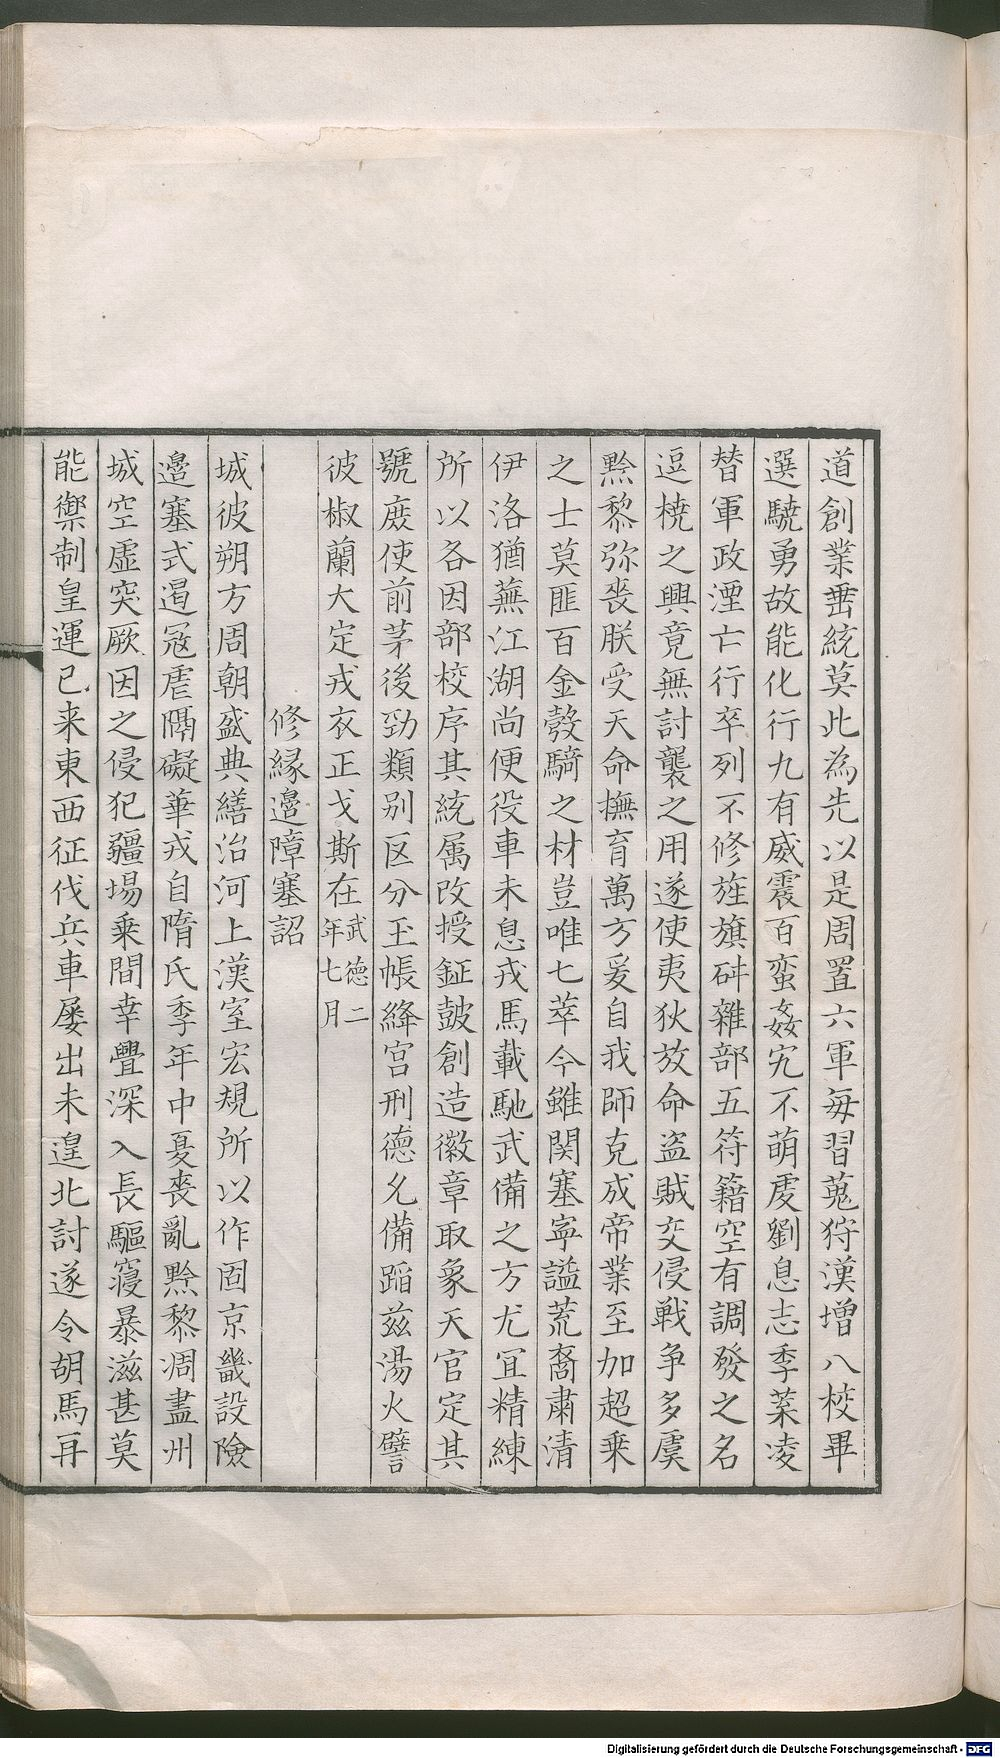 道創業垂統莫此為先以是周置六軍每習蒐狩漢增八校畢
選驍勇故能化行九有威震百蛮姦宄不萌虔劉息志季葉凌
替軍政湮亡行卒列不修旌旗舛雜部五符籍空有調發之名
逗撓之興竟無討襲之用遂使夷狄放命盗賊交侵戦争多虞
黔黎弥丧朕受天命撫育萬方爰自我師克成帝業至加超乗
之士莫匪百金彀騎之材豈唯七萃今雖関塞寜謐荒裔粛清
伊洛猶蕪江湖尚便役車未息戎馬載馳武備之方尤冝精練
所以各因部校序其統属改授鉦皷創造徽章取象天官定其
號庻使前茅後勁類别区分玉帳絳宫刑德允備蹈兹湯火譬
彼椒蘭大定戎衣正戈斯在武德二年七月
修縁邉障塞詔
城彼朔方周朝盛典繕治河上漢室宏規所以作固京畿設險
邉塞式遏冦虐隔礙華戎自隋氏季年中夏丧亂黔黎凋盡州
城空虚突厥因之侵犯疆場乗間幸舋深入長驅寝暴滋甚莫
能禦制皇運已来東西征伐兵車屡出未遑北討遂令胡馬再
Digitalisierung gefördert durch die Deutsche Forschungsgemeinschaft - DFG